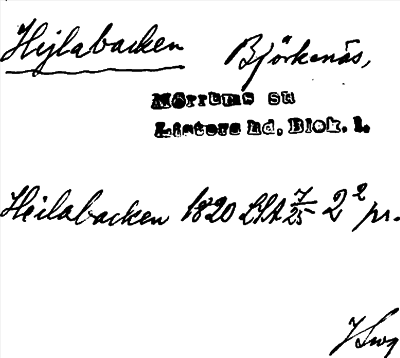 Hejlabacken Björkenäs,
Mörrums sn
Listers hd, Blek. l.
Heilabacken 1820 LSA 7/25 2² pr.